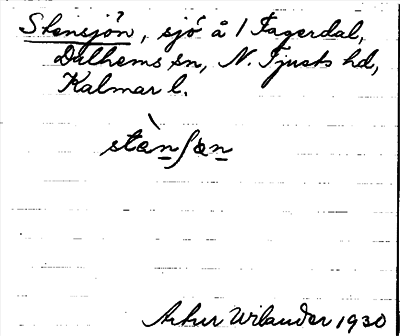 Stensjön, sjö å 1 Fagerdal,
Dalhems sn, N. Tjusts hd,
Kalmar l.
stὲnʃøn
Arthur Wilander 1930